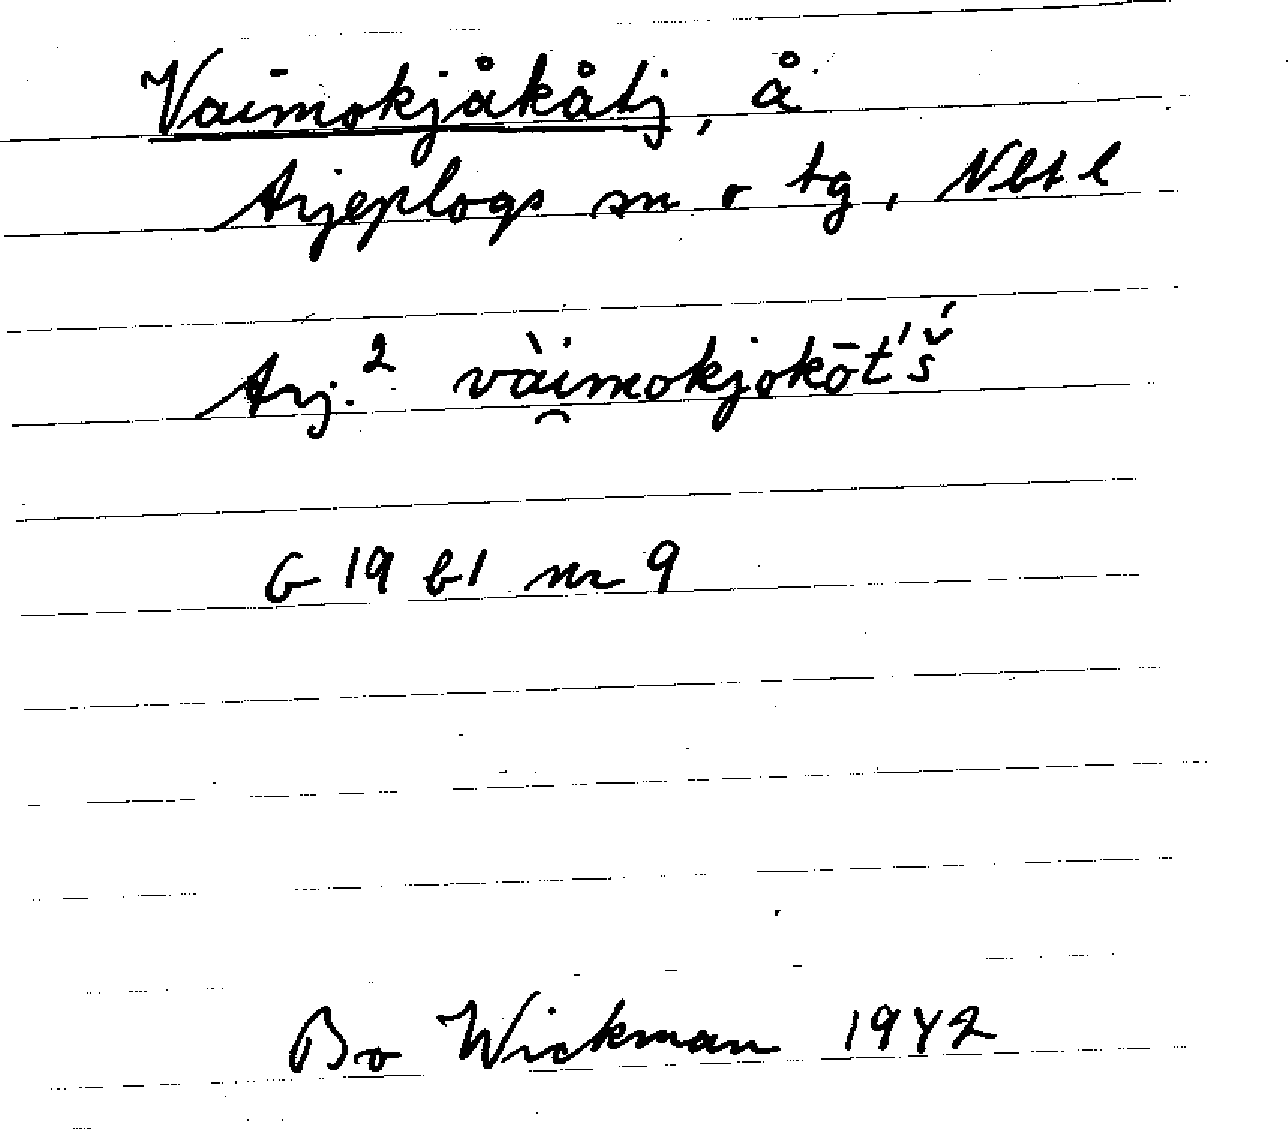 Vaimokjåkåtj, å
Arjeplogs sn o tg, Nbt l
Arj.² và̯imokjokōt́'š́
G 19 b1 nr 9
Bo Wickman 1942